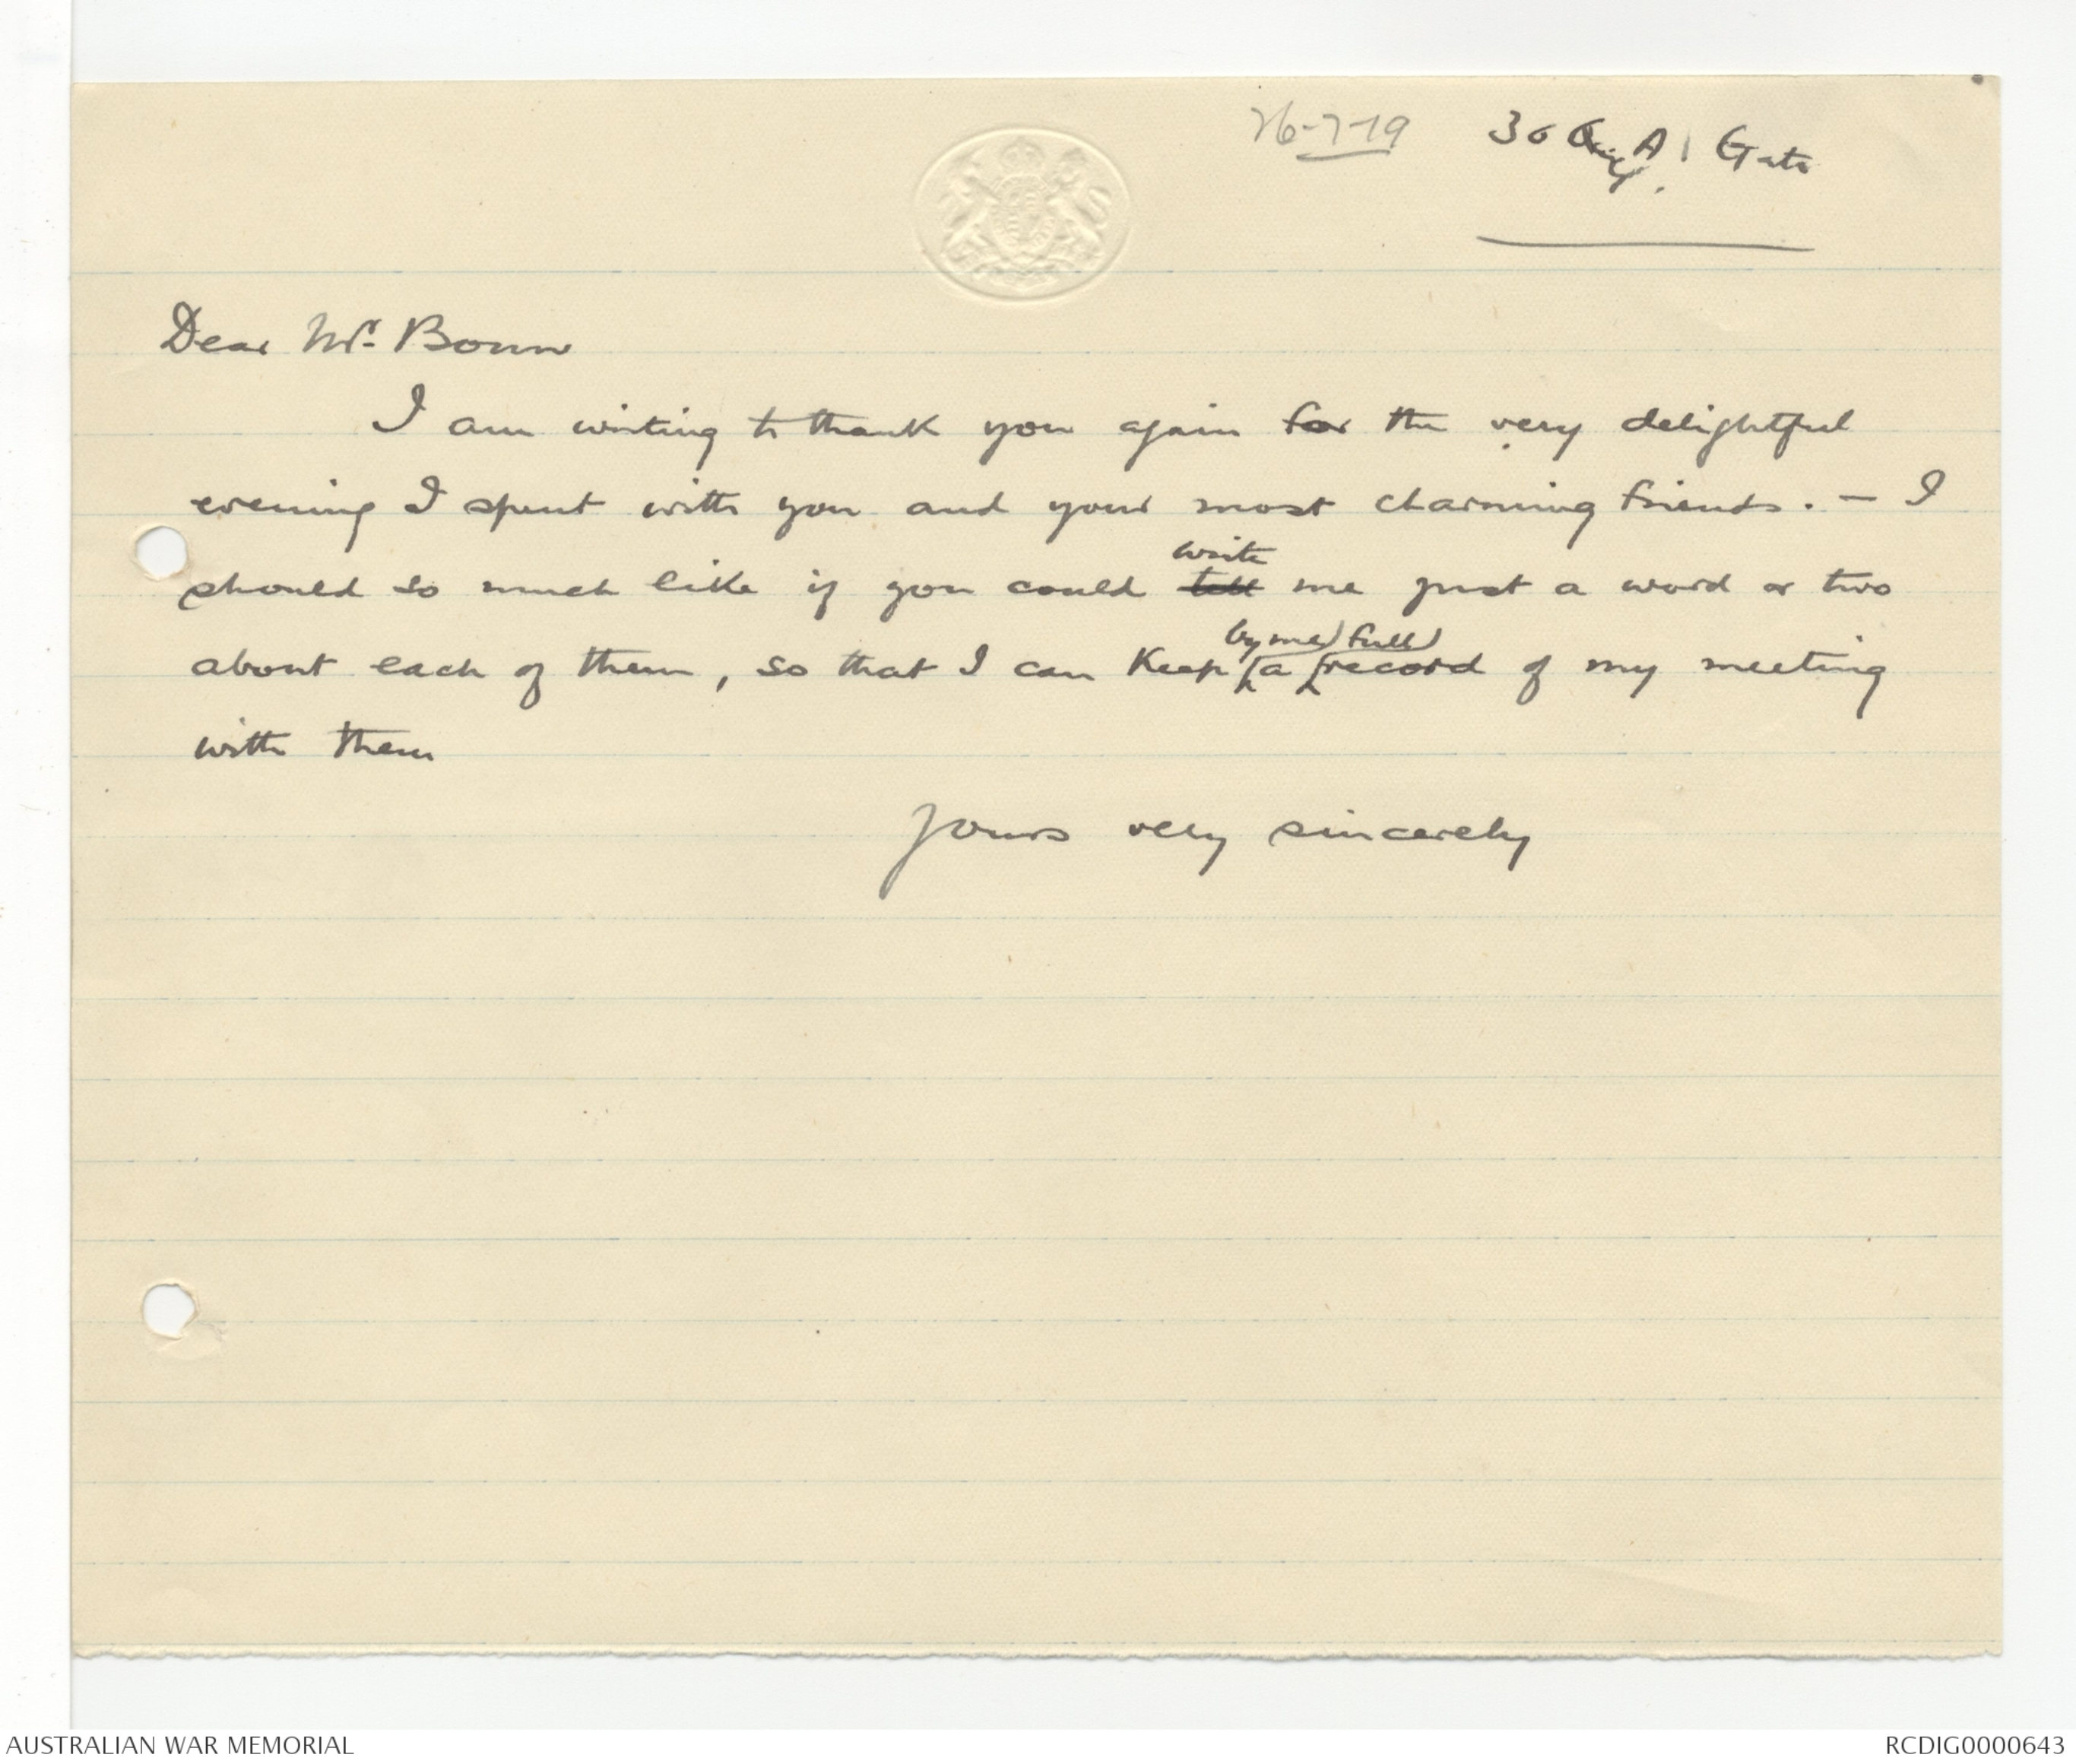 26-7-19 36 A Gate
Dear Mr. Bonn
I am writing to thank you again for the very delightful
evening I spent with you and your most charming friends. — I
write
should so much like if you could tell me just a word or two
by me full
about each of them, so that I can Keep a record of my meeting
with them
Yours very sincerely
AUSTRALIAN WAR MEMORIAL
RCDIG0000643